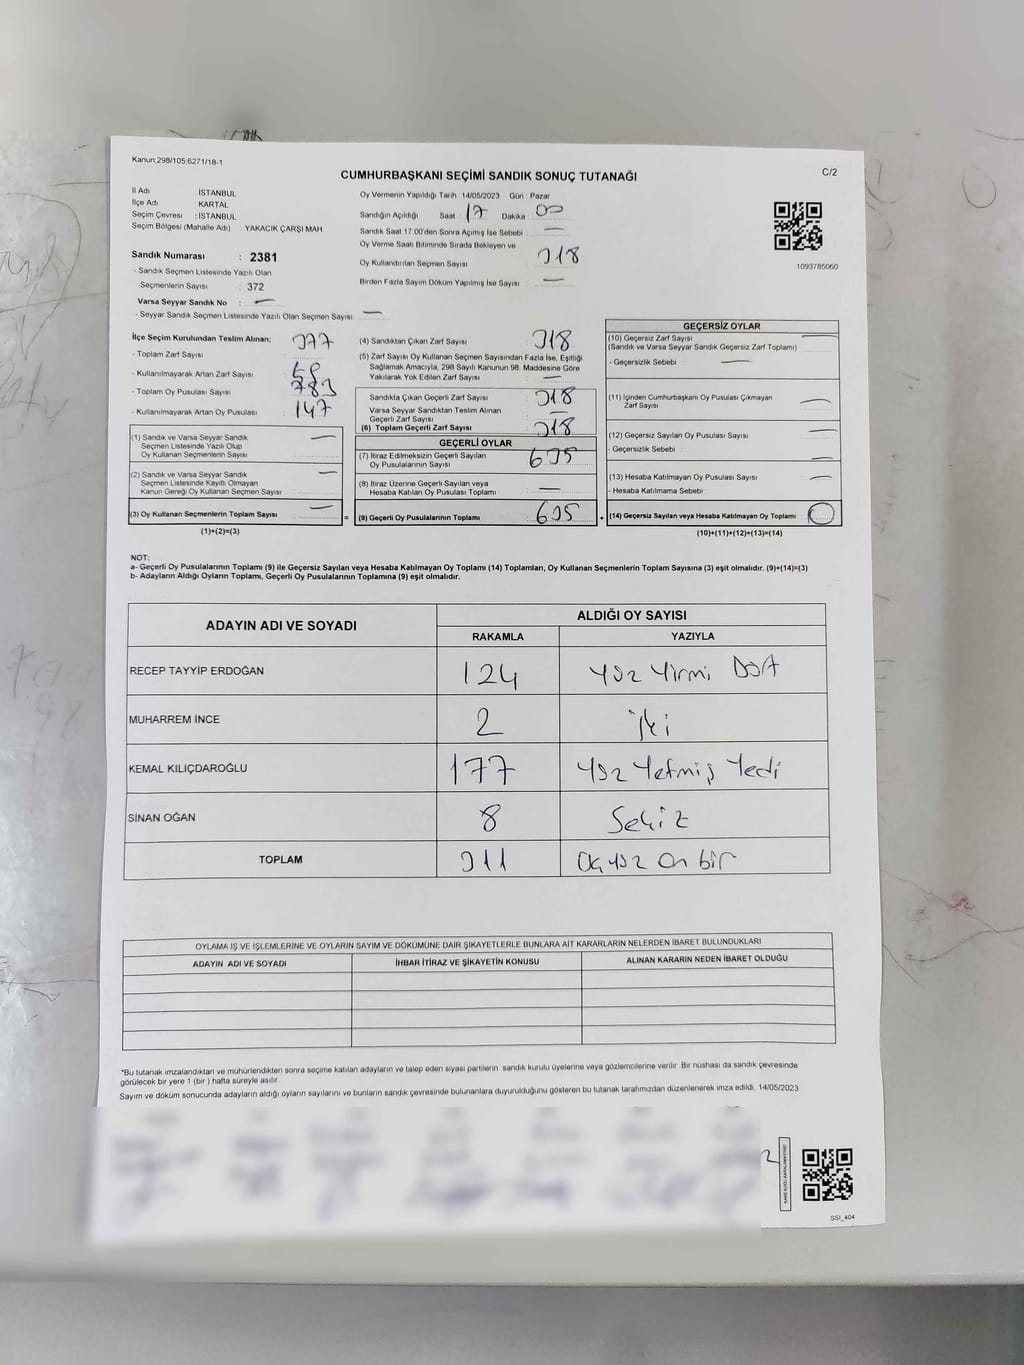 Kanun;298/105;6271/18-1
CUMHURBAŞKANI SEÇİMİ SANDIK SONUÇ TUTANAĞI
C/2
İl Adı İSTANBUL
İlçe Adı KARTAL
Seçim Çevresi : İSTANBUL
Seçim Bölgesi (Mahalle Adı) : YAKACIK ÇARŞI MAH
Sandık Numarası : 2381
- Sandık Seçmen Listesinde Yazılı Olan
Seçmenlerin Sayısı : 372
Varsa Seyyar Sandık No : —
- Seyyar Sandık Seçmen Listesinde Yazılı Olan Seçmen Sayısı : —
Oy Vermenin Yapıldığı Tarih : 14/05/2023 Gün : Pazar
Sandığın Açıldığı Saat : 17 Dakika : 00
Sandık Saat 17.00'den Sonra Açımış İse Sebebi : —
Oy Verme Saati Bitiminde Sırada Bekleyen ve
Oy Kullandırılan Seçmen Sayısı 318
Birden Fazla Sayım Döküm Yapılmış İse Sayısı : —
1093785060
İlçe Seçim Kurulundan Teslim Alınan;
- Toplam Zarf Sayısı : 377
- Kullanılmayarak Artan Zarf Sayısı :
- Toplam Oy Pusulası Sayısı : 783
- Kullanılmayarak Artan Oy Pusulası : 147
(1) Sandık ve Varsa Seyyar Sandık
Seçmen Listesinde Yazılı Olup
Oy Kullanan Seçmenlerin Sayısı : —
(2) Sandık ve Varsa Seyyar Sandık
Seçmen Listesinde Kayıtlı Olmayan
Kanun Gereği Oy Kullanan Seçmen Sayısı : —
(3) Oy Kullanan Seçmenlerin Toplam Sayısı : —
(1)+(2)=(3)
(4) Sandıktan Çıkan Zarf Sayısı : 318
(5) Zarf Sayısı Oy Kullanan Seçmen Sayısından Fazla İse, Eşitliği
Sağlamak Amacıyla, 298 Sayılı Kanunun 98. Maddesine Göre
Yakılarak Yok Edilen Zarf Sayısı : —
Sandıkta Çıkan Geçerli Zarf Sayısı : 318
Varsa Seyyar Sandıktan Teslim Alınan
Geçerli Zarf Sayısı : —
(6) Toplam Geçerli Zarf Sayısı : 318
GEÇERLİ OYLAR
(7) İtiraz Edilmeksizin Geçerli Sayılan
Oy Pusulalarının Sayısı : 635
(8) İtiraz Üzerine Geçerli Sayılan veya
Hesaba Katılan Oy Pusulası Toplamı : —
= (9) Geçerli Oy Pusulalarının Toplamı : 635
GEÇERSİZ OYLAR
(10) Geçersiz Zarf Sayısı
(Sandık ve Varsa Seyyar Sandık Geçersiz Zarf Toplamı) : —
- Geçersizlik Sebebi : —
(11) İçinden Cumhurbaşkanı Oy Pusulası Çıkmayan
Zarf Sayısı : —
(12) Geçersiz Sayılan Oy Pusulası Sayısı : —
- Geçersizlik Sebebi : —
(13) Hesaba Katılmayan Oy Pusulası Sayısı : —
- Hesaba Katılmama Sebebi :
+ (14) Geçersiz Sayılan veya Hesaba Katılmayan Oy Toplamı : 0
(10)+(11)+(12)+(13)=(14)
NOT:
a- Geçerli Oy Pusulalarının Toplamı (9) ile Geçersiz Sayılan veya Hesaba Katılmayan Oy Toplamı (14) Toplamları, Oy Kullanan Seçmenlerin Toplam Sayısına (3) eşit olmalıdır. (9)+(14)=(3)
b- Adayların Aldığı Oyların Toplamı, Geçerli Oy Pusulalarının Toplamına (9) eşit olmalıdır.
ADAYIN ADI VE SOYADI ALDIĞI OY SAYISI
RAKAMLA YAZIYLA
RECEP TAYYİP ERDOĞAN 124 Yüz Yirmi Dört
MUHARREM İNCE 2 İki
KEMAL KILIÇDAROĞLU 177 Yüz Yetmiş Yedi
SİNAN OĞAN 8 Sekiz
TOPLAM 311 Üç yüz on bir
OYLAMA İŞ VE İŞLEMLERİNE VE OYLARIN SAYIM VE DÖKÜMÜNE DAİR ŞİKAYETLERLE BUNLARA AİT KARARLARIN NELERDEN İBARET BULUNDUKLARI
ADAYIN ADI VE SOYADI İHBAR İTİRAZ VE ŞİKAYETİN KONUSU ALINAN KARARIN NEDEN İBARET OLDUĞU
*Bu tutanak imzalandıktan ve mühürlendikten sonra seçime katılan adayların ve talep eden siyasi partilerin sandık kurulu üyelerine veya gözlemcilerine verilir. Bir nüshası da sandık çevresinde
görülecek bir yere 1 (bir ) hafta süreyle asılır.
Sayım ve döküm sonucunda adayların aldığı oyların sayılarını ve bunların sandık çevresinde bulunanlara duyurulduğunu gösteren bu tutanak tarafımızdan düzenlenerek imza edildi. 14/05/2023
SSI_404